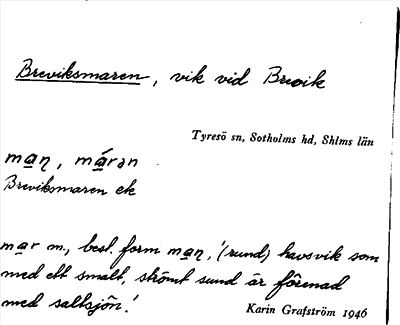 Breviksmaren, vik vid Brevik
Tyresö sn, Sotholms hd, Shlms län
man, máran
Breviksmaren ek
mar m., best. form man, '(rund) havsvik som
med ett smalt, strömt sund är förenad
med saltsjön.'
Karin Grafström 1946